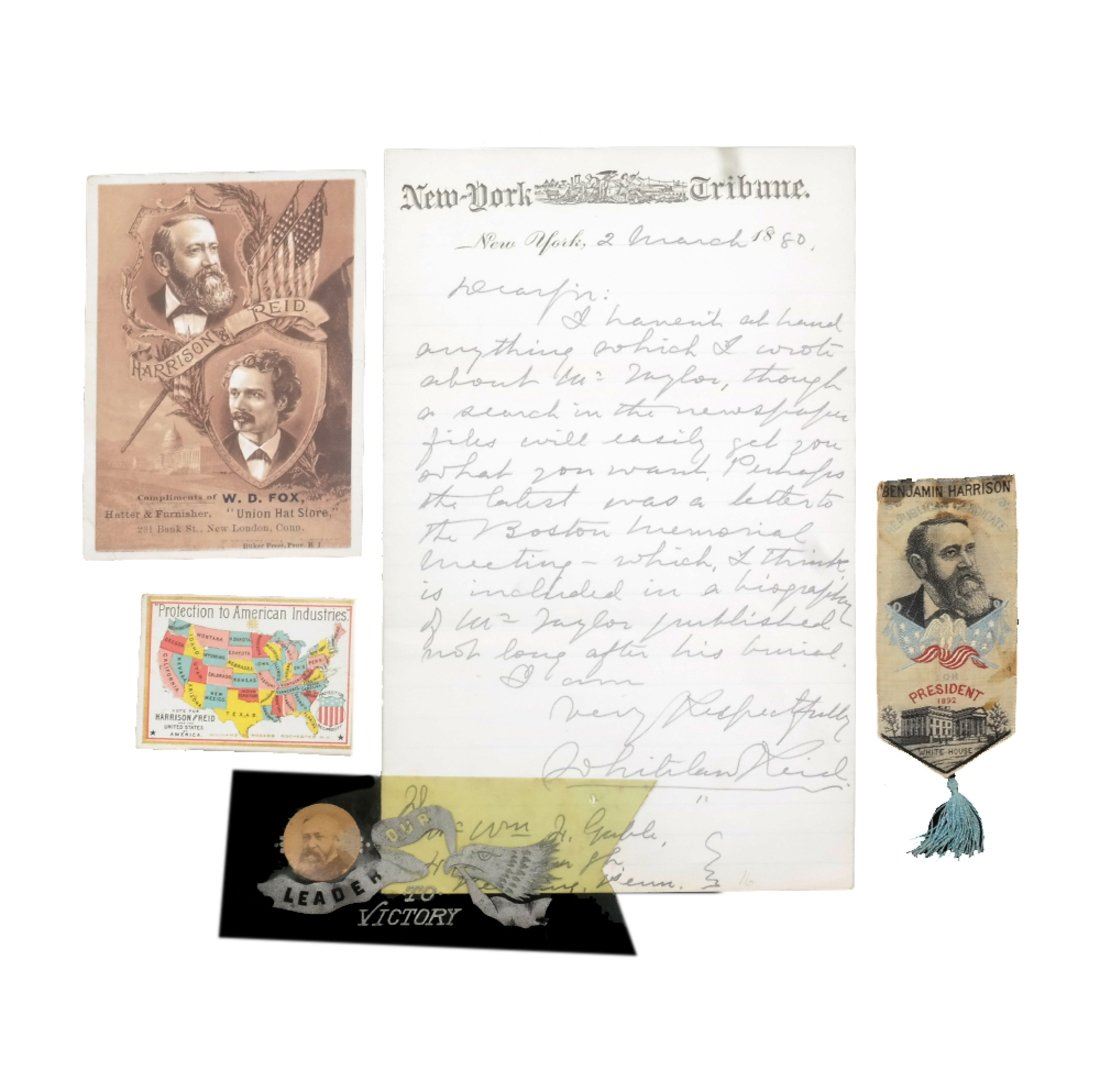 HARRISON & REID.
Compliments of W. D. FOX,
Hatter & Furnisher, "Union Hat Store,"
231 Bank St., New London, Conn.
"Protection to American Industries."
OREGON
CALIFORNIA
NEVADA
IDAHO
MONTANA
WYOMING
UTAH
COLORADO
ARIZONA
NEW MEXICO
DAKOTA
NEBRASKA
KANSAS
TEXAS
IOWA
VOTE FOR
HARRISON AND REID
UNITED STATES
OF
AMERICA.
New-York Tribune.
New York, 2 March 1880.
Dear Sir:
I haven't at hand
anything which I wrote
about Mr Taylor, though
a search in the newspaper
files will easily get you
what you want. Perhaps
the latest was a letter to
the Boston Memorial
Meeting – which, I think
is included in a biography
of Mr Taylor published
not long after his burial.
I am
Very Respectfully
Whitelaw Reid.
Wm
Penn.
OUR
LEADER
TO
VICTORY
BENJAMIN HARRISON
REPUBLICAN CANDIDATE
FOR
PRESIDENT
1892
WHITE HOUSE